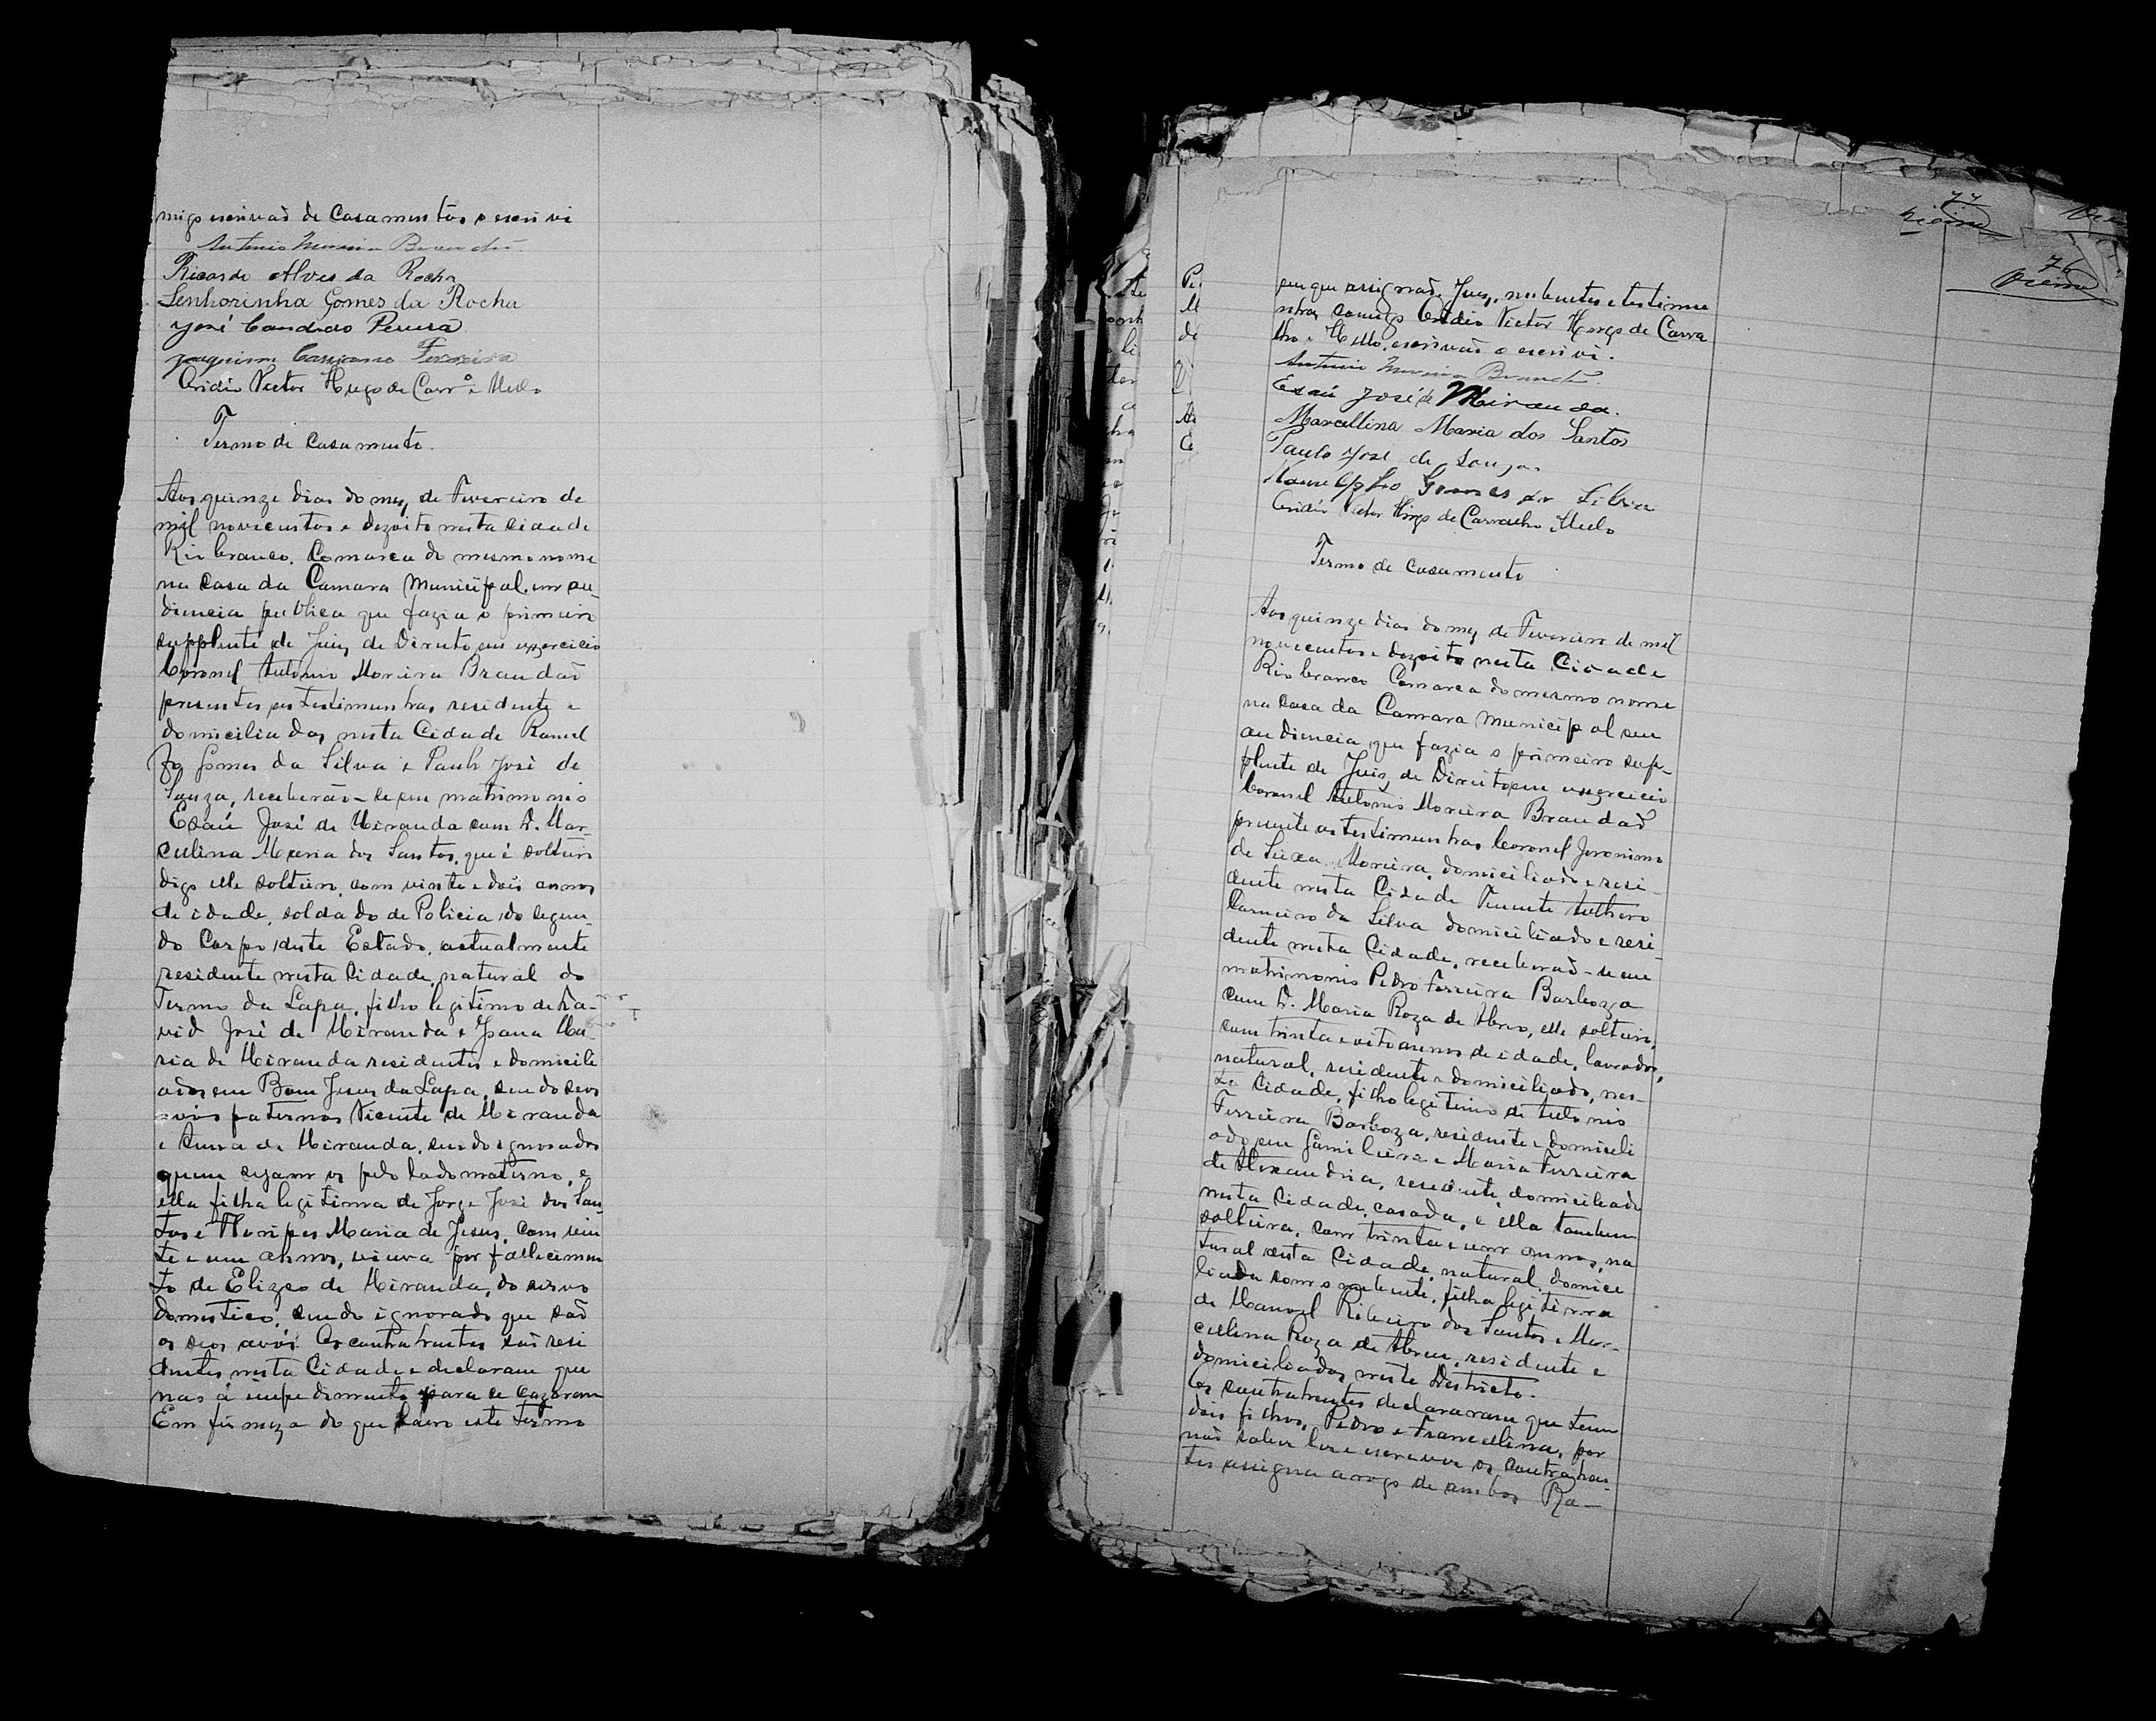 migo escrivaõ de Casamentos o escrevi
Antonio Moreira Brandão
Ricardo Alves da Rocha
Senhorinha Gomes da Rocha
José Candido Pereira
Joaquim Cassiano Ferreira
Ovidio Victor Hugo de Carrº e Mello
Termo de Casamento.
Aos quinze dias do mez de Fevereiro de
mil novecentos e dezoito nesta Cidade
Rio branco, Comarca do mesmo nome
na Casa da Camara Municipal, em au-
diencia publica que fazia o primeiro
supplente de Juiz de Direito em exercicio
Coronel Antonio Moreira Brandaõ
presentes as testimunhas residente e
domiciliadas nesta Cidade Manoel
Gomes da Silva e Paulo José de
Souza, receberão-se em matrimonio
Esaú José de Miranda com D. Mar-
culina Maria dos Santos, que é solteiro
digo elle solteiro, com vinte e dois annos
de idade, soldado de Policia do segun-
do Corpo deste Estado, actualmente
residente nesta Cidade, natural do
Termo da Lapa, filho legitimo de Da-
vid José de Miranda e Joana Ma-
ria de Miranda residentes e domicili
ados em Bom Jesus da Lapa, sendo seos
avós paternos Vicente de Miranda
e Anna de Miranda, sendo ignorados
quem sejam os pelo lado materno, e
ella filha legitima de Jorge José dos San
tos e Floripes Maria de Jesus, com vin
te e um annos, viuva por fallecimen
to de Elizeo de Miranda, do serviço
domestico, sendo ignorado que saõ
os seos avós. Os contrahentes saõ resi
dentes nesta Cidade e declaram que
nao á impedimento para se cazarem
Em firmeza do que lavro este termo
77
Vieira
76
Vieira
em que assignaõ Juiz, nubentes e testimu
nhas comigo Ovidio Victor Hugo de Carva
lho e Mello, escrivaõ o escrevi.
Antonio Moreira Brandão
Esaú José de Miranda.
Marcellina Maria dos Santos
Paulo José de Souza
Gomes da Silva
Ovidio Victor Hugo de Carvalho Mello
Termo de Casamento
Aos quinze dias do mez de Fevereiro de mil
novecentos e dezoito nesta Cidade
Rio branco Comarca do mesmo nome
na Casa da Camara Municipal em
audiencia que fazia o primeiro sup-
plente de Juiz de Direito em exercicio
Coronel Antonio Moreira Brandaõ
presente as testimunhas Coronel Jeronimo
de Moreira, domiciliado e resi-
dente nesta Cidade Tenente Anthero
Carneiro da Silva domiciliado e resi-
dente nesta Cidade, receberaõ-se em
matrimonio Pedro Ferreira Barboza
com D. Maria Roza de Abreo, elle solteiro,
com trinta e oito annos de idade, lavrador,
natural, residente e domiciliado, nes-
ta Cidade, filho legitimo de Antonio
Ferreira Barboza, residente e domicili
ado em Gamileira e Maria Ferreira
de Alixandria, residente, domiciliado
nesta Cidade, casada, e ella tambem
solteira, com trinta e um annos, na
tural desta Cidade, natural domici
liada com o nubente, filha legitima
de Manoel Ribeiro dos Santos e Mar-
culina Roza de Abreu, residente e
domiciliados neste Districto.
Os contrahentes declararam que teem
dois filhos, Pedro e Francellina, por
naõ saber ler e escrever os contrahen-
tes assigna a rogo de ambos Ra-